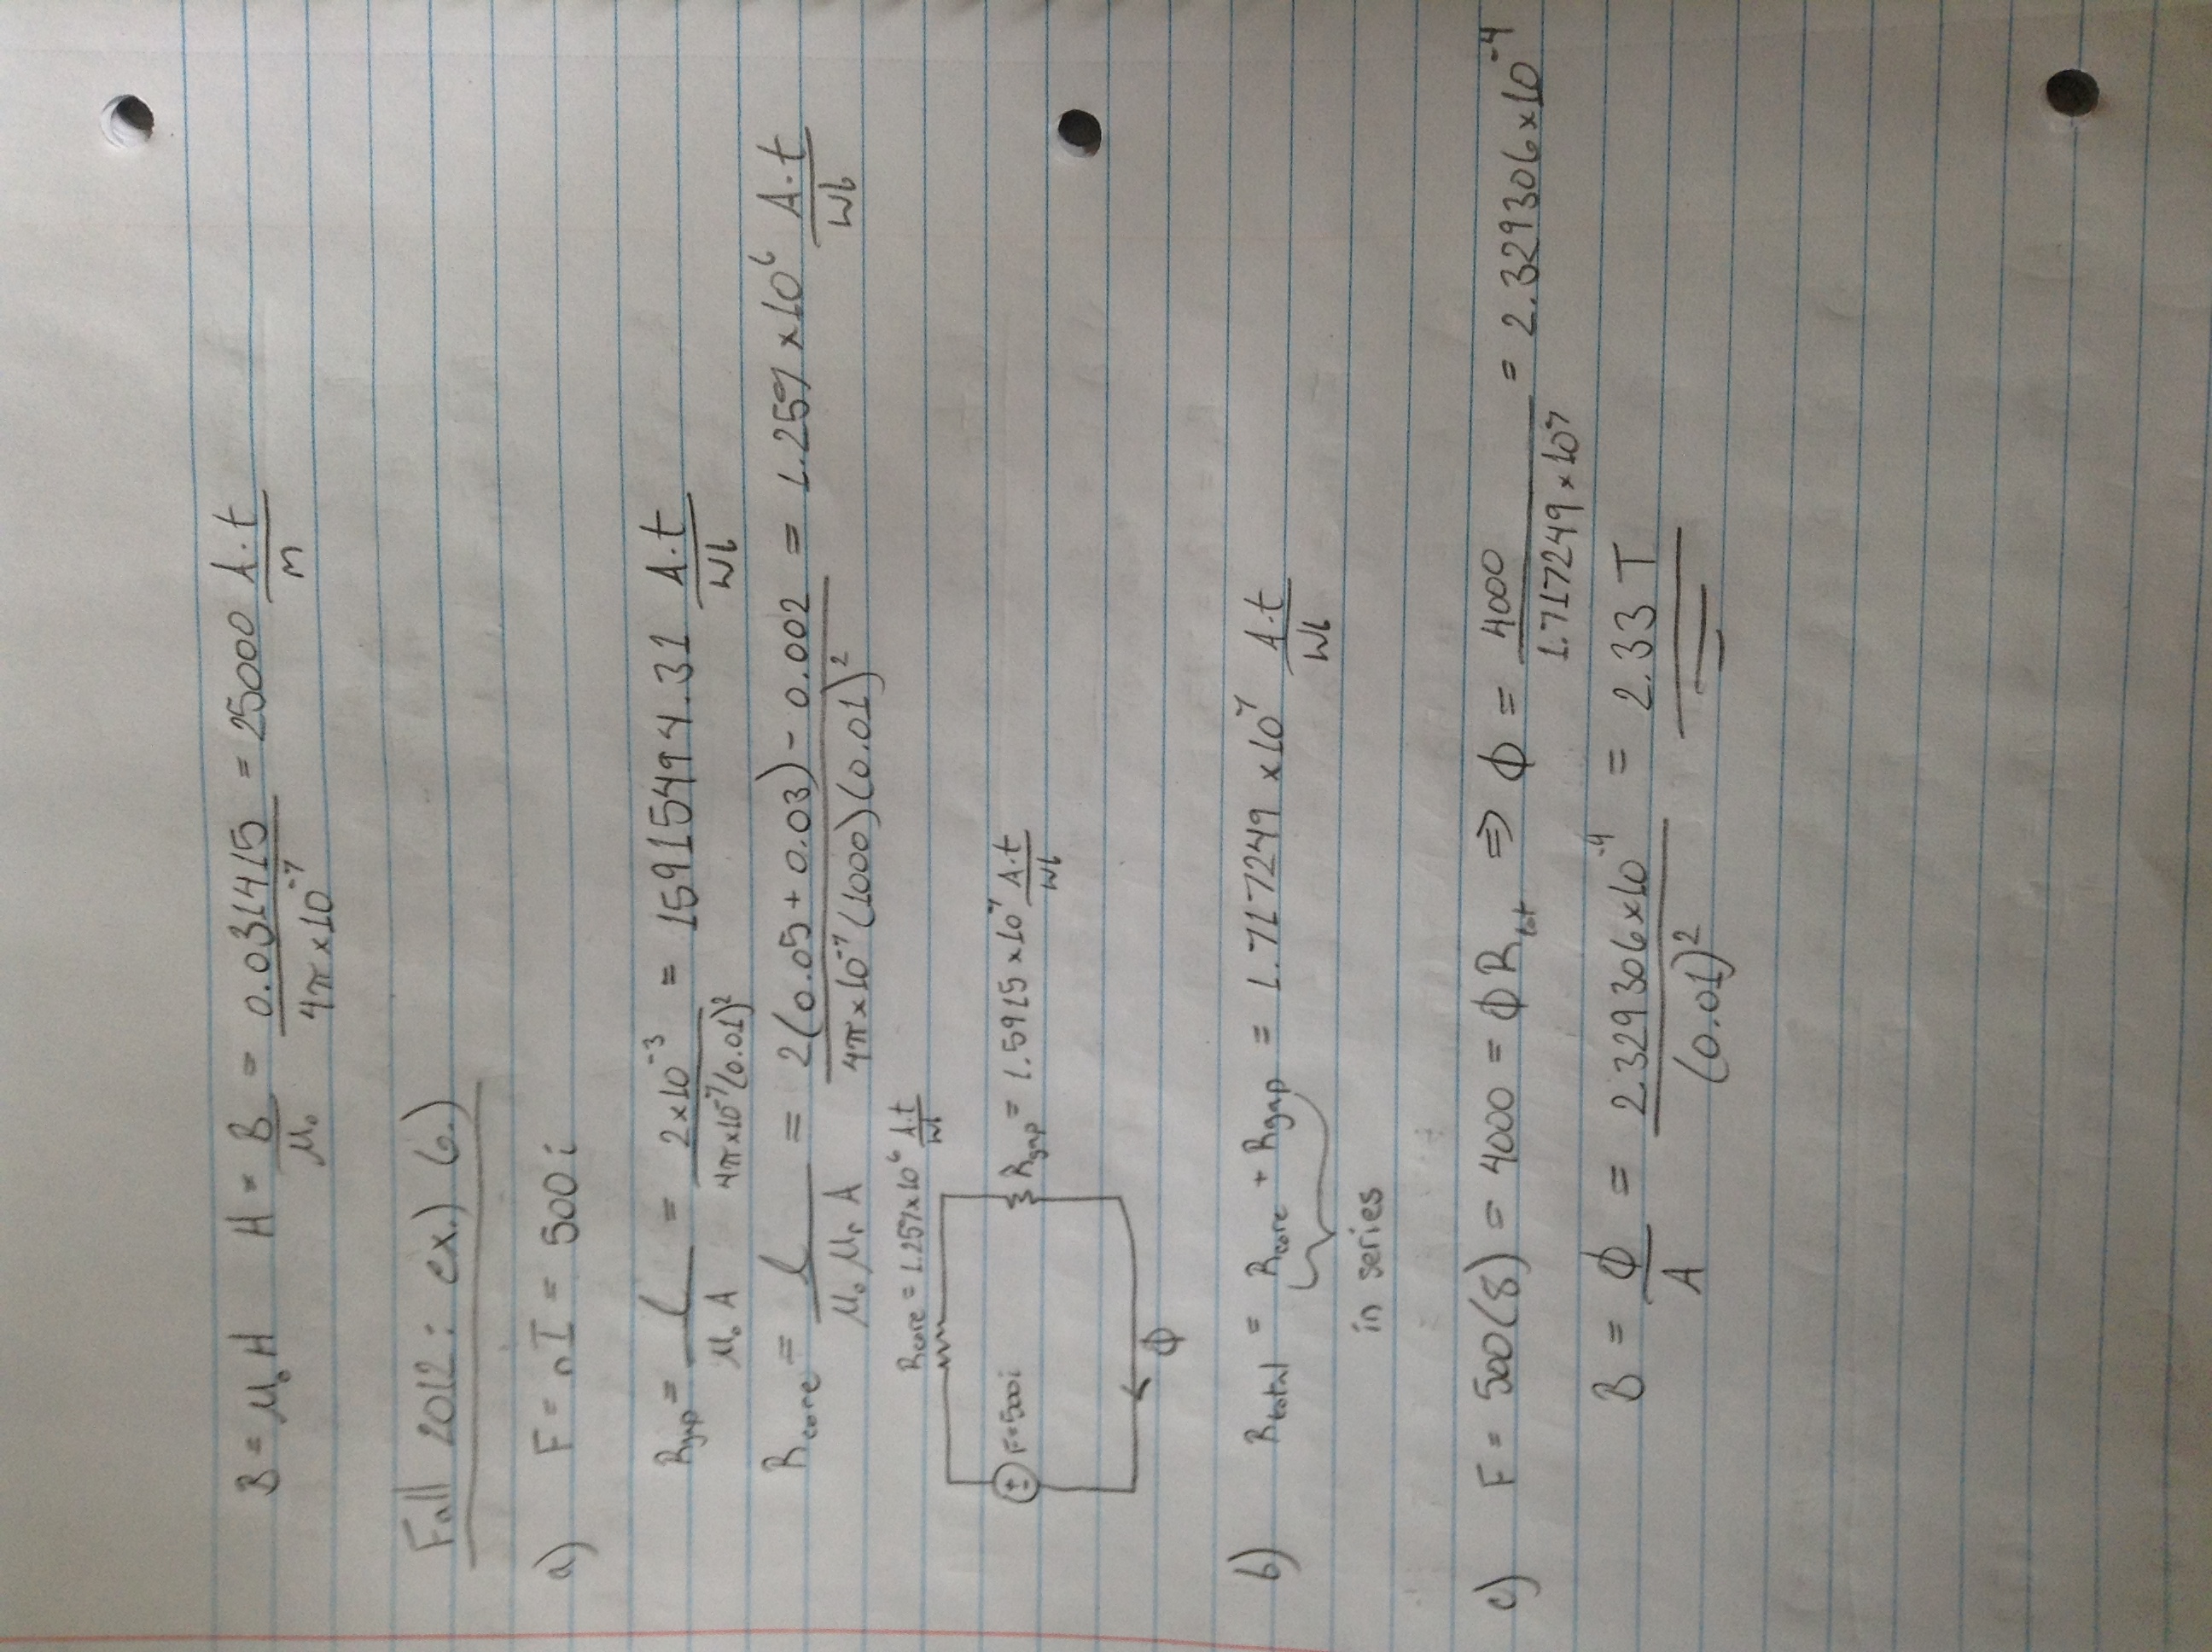 B = μ₀ H   H = B/μ₀ = 0.031415/(4π×10⁻⁷) = 25000 A·t/m
Fall 2012: ex.) 6.)
a) F = nI = 500 i
Rgap = l/(μ₀ A) = 2×10⁻³/(4π×10⁻⁷(0.01)²) = 15915494.31 A·t/Wb
Rcore = l/(μ₀ μr A) = (2(0.05 + 0.03) - 0.002)/(4π×10⁻⁷(1000)(0.01)²) = 1.257 ×10⁶ A·t/Wb
Rcore = 1.257×10⁶ A·t/Wb
± F=500i
Rgap = 1.5915 ×10⁷ A·t/Wb
ϕ
b) Rtotal = Rcore + Rgap = 1.717249 ×10⁷ A·t/Wb
in series
c) F = 500(8) = 4000 = ϕ Rtot ⇒ ϕ = 4000/(1.717249×10⁷) = 2.329306×10⁻⁴
B = ϕ/A = 2.329306×10⁻⁴/(0.01)² = 2.33 T